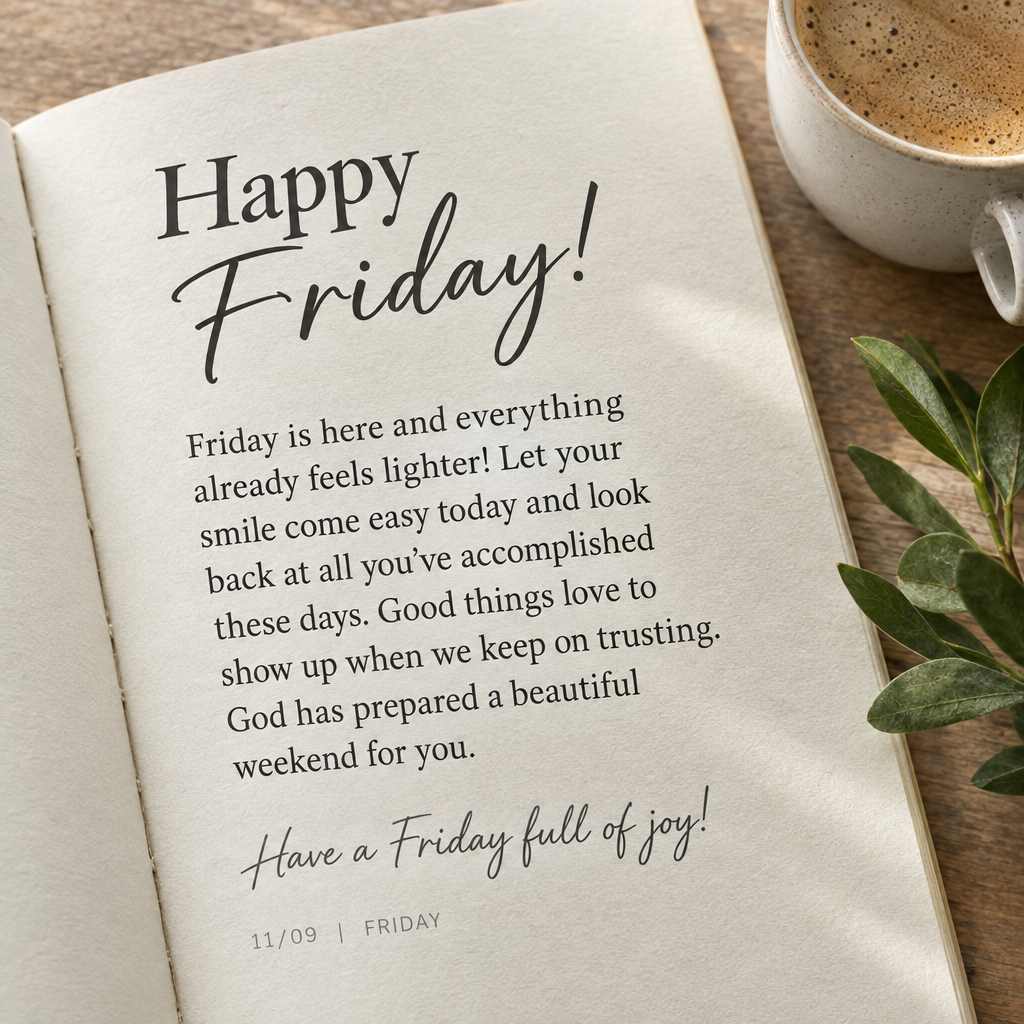 Happy
Friday!
Friday is here and everything
already feels lighter! Let your
smile come easy today and look
back at all you've accomplished
these days. Good things love to
show up when we keep on trusting.
God has prepared a beautiful
weekend for you.
Have a Friday full of joy!
11/09 | FRIDAY